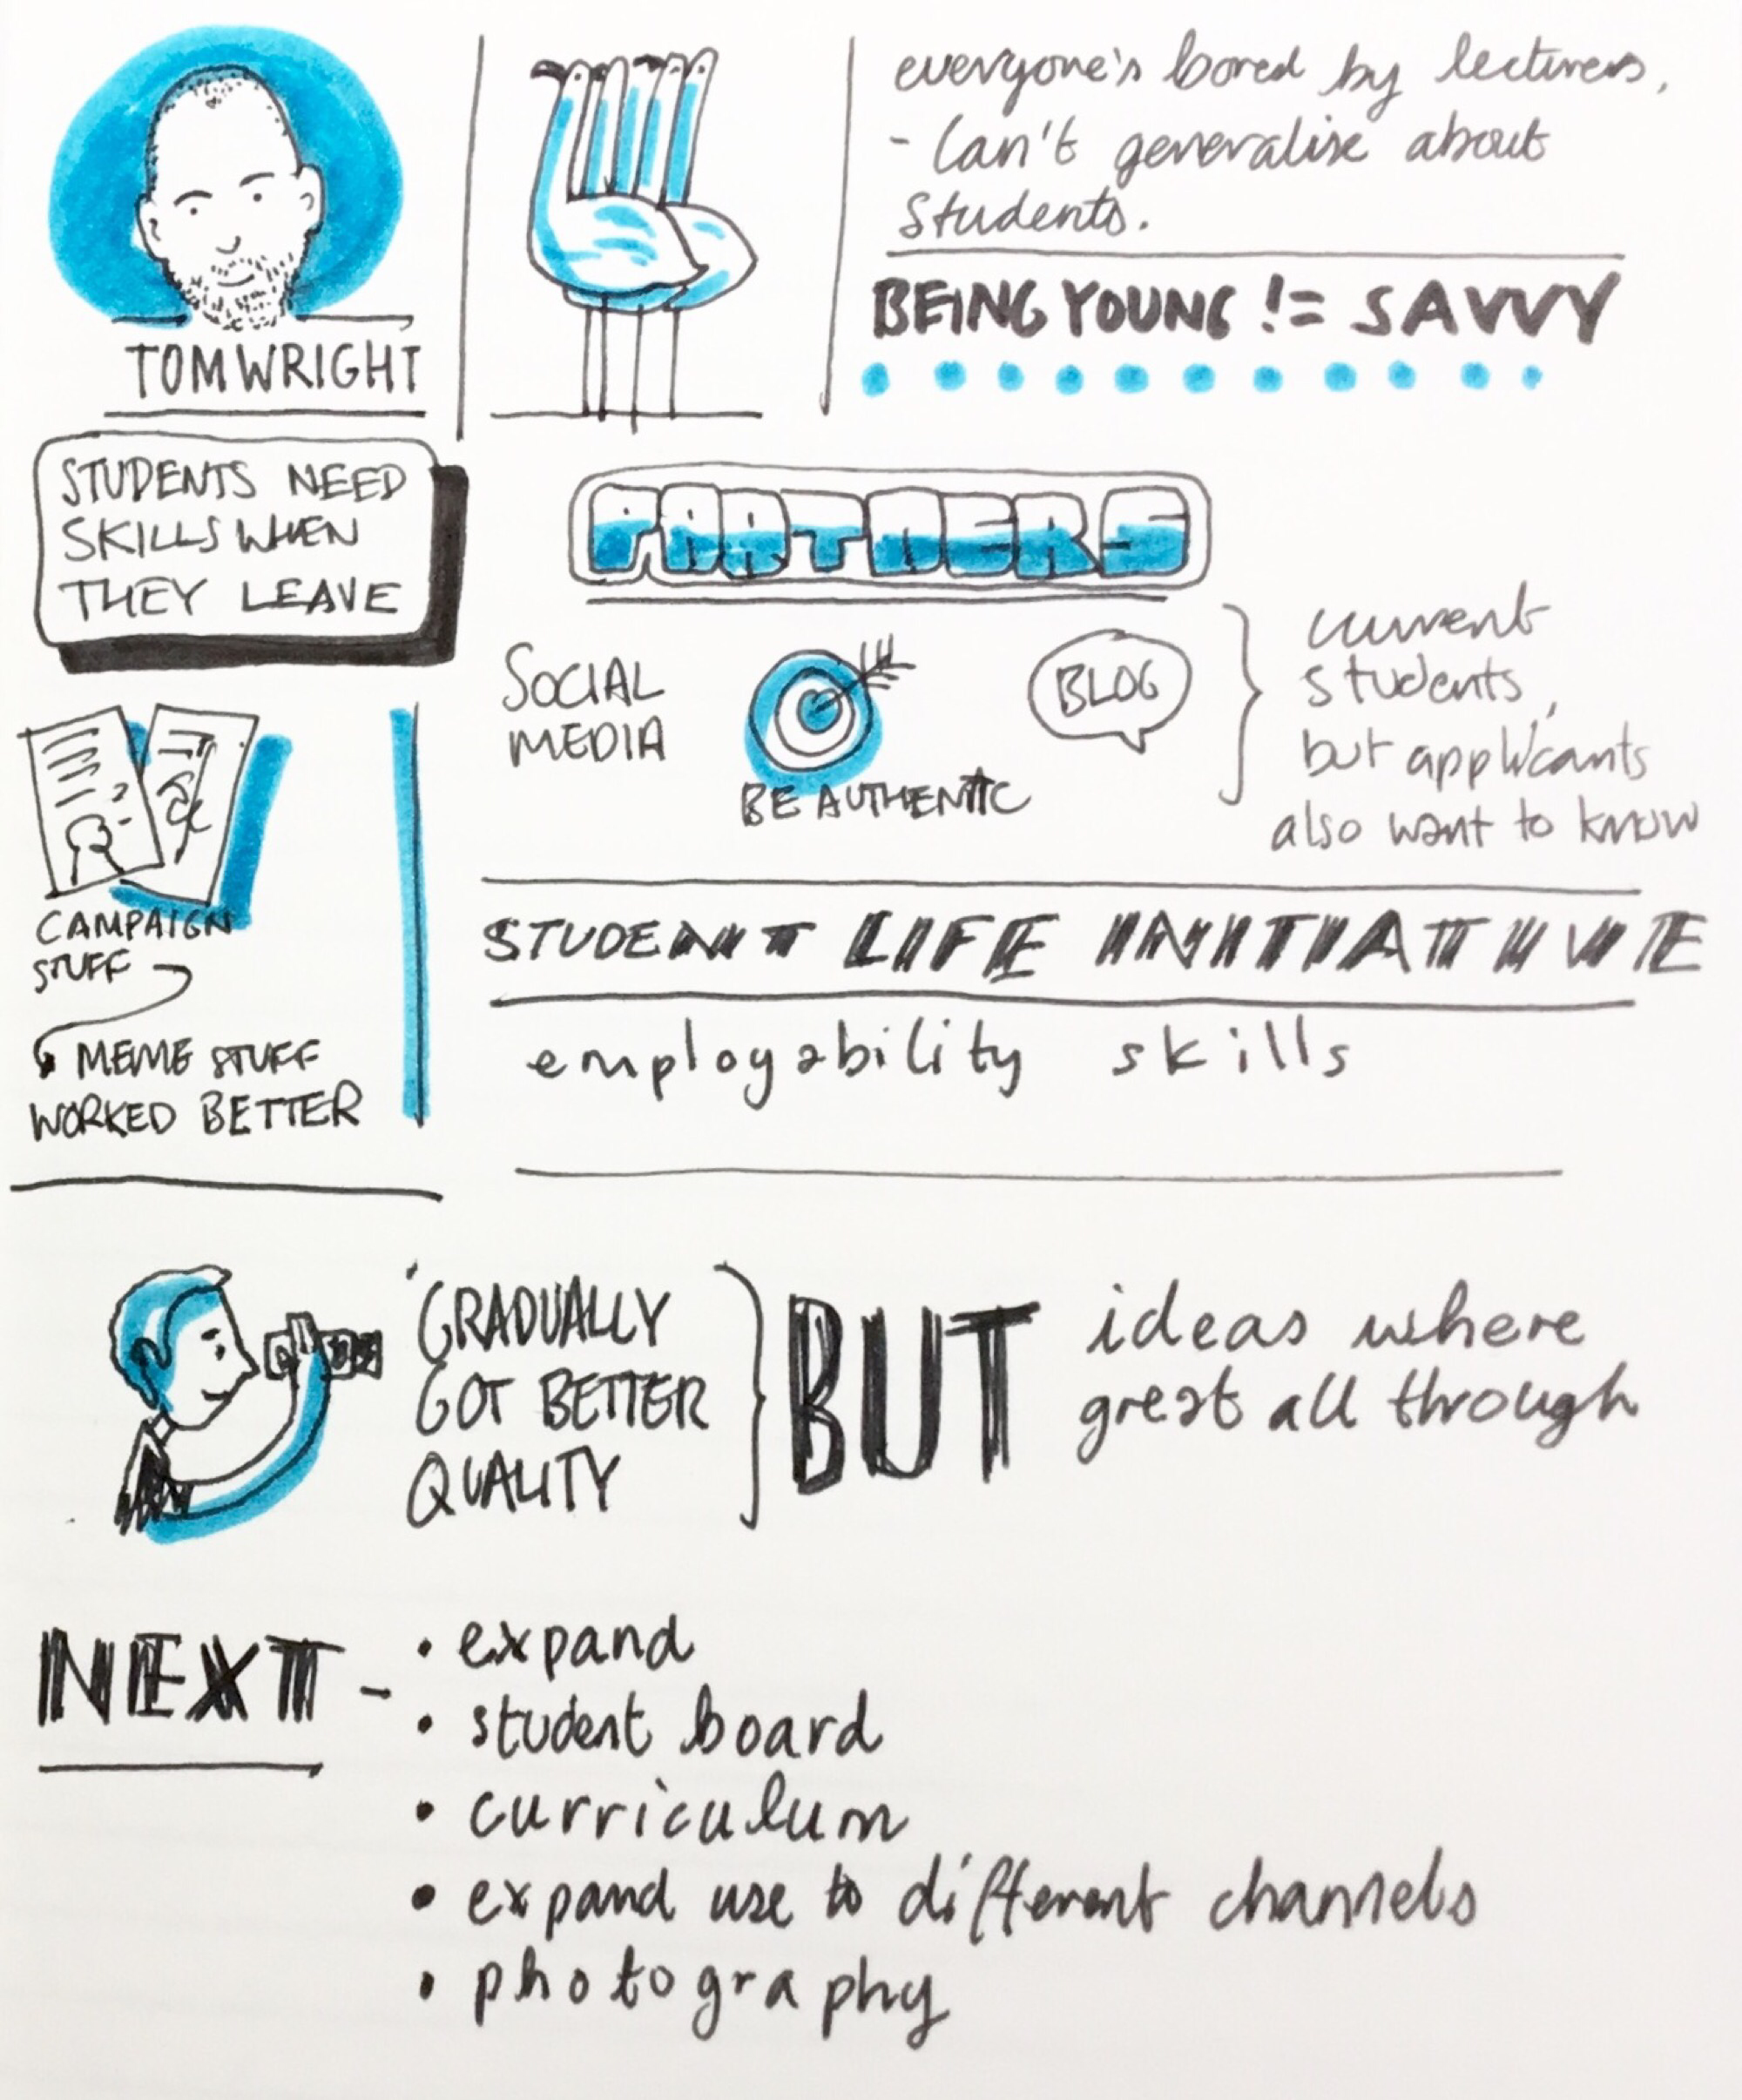 TOM WRIGHT
everyone's bored by lecturers,
- Can't generalise about
Students.
BEING YOUNG != SAVVY
STUDENTS NEED
SKILLS WHEN
THEY LEAVE
PARTNERS
SOCIAL
MEDIA
BE AUTHENTIC
BLOG
current
students,
but applicants
also want to know
CAMPAIGN
STUFF
MEME STUFF
WORKED BETTER
STUDENT LIFE INITIATIVE
employability skills
GRADUALLY
GOT BETTER
QUALITY
BUT
ideas where
great all through
NEXT -
• expand
• student board
• curriculum
• expand use to different channels
• photography